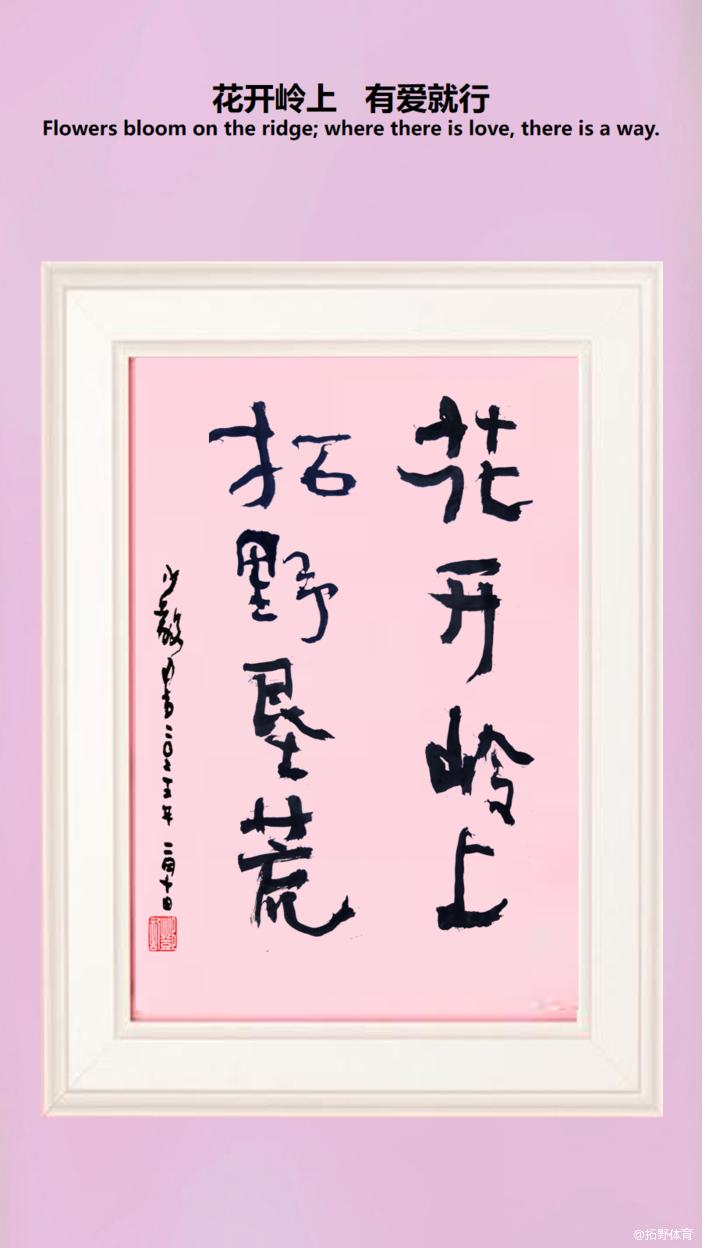 花开岭上 有爱就行
Flowers bloom on the ridge; where there is love, there is a way.
花开岭上
拓野垦荒
二〇二五年 二月十日
@拓野体育